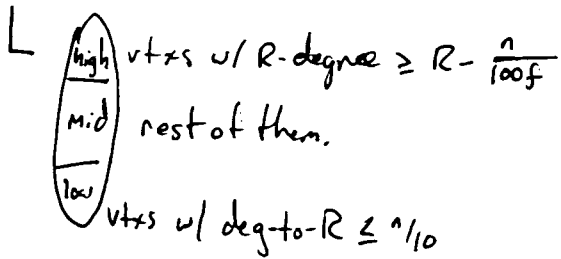 L
high vtxs w/ R-degree ≥ R - n/100f
Mid rest of them.
low
vtxs w/ deg-to-R ≤ n/10